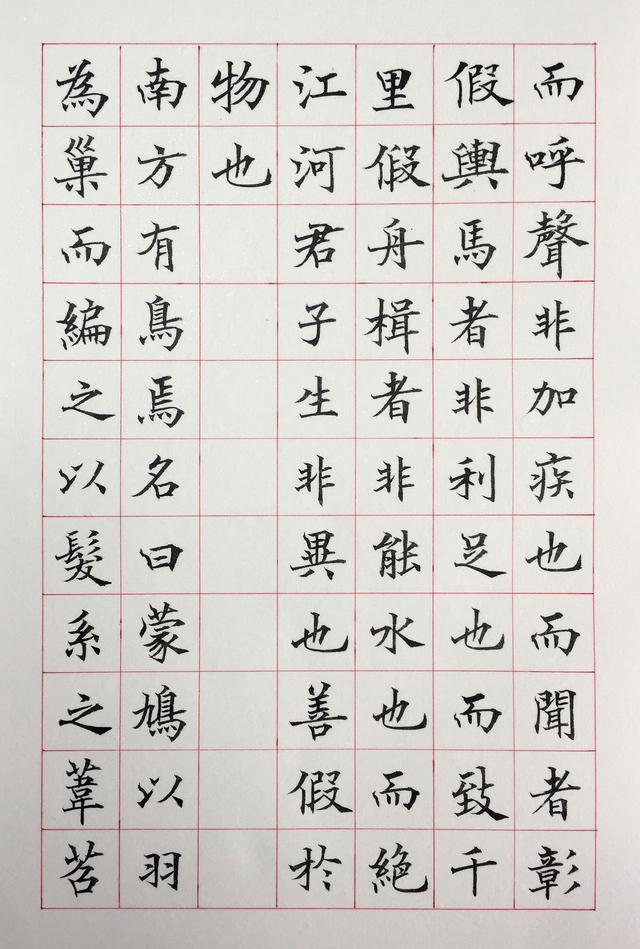 而呼聲非加疾也而聞者彰
假輿馬者非利足也而致千
里假舟楫者非能水也而絕
江河君子生非異也善假於
物也
南方有鳥焉名曰蒙鳩以羽
為巢而編之以髮系之葦苕